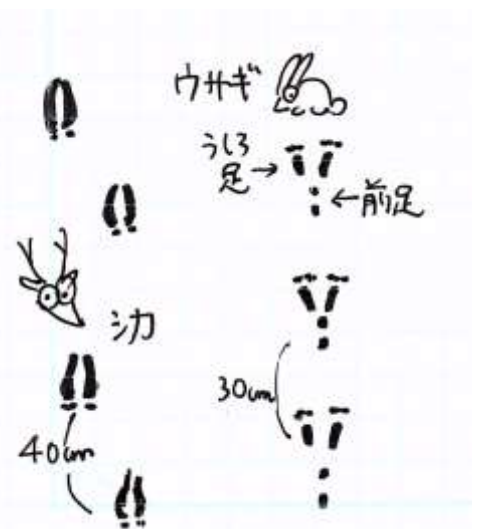 ウサギ
うしろ
足→
←前足
シカ
30cm
40cm